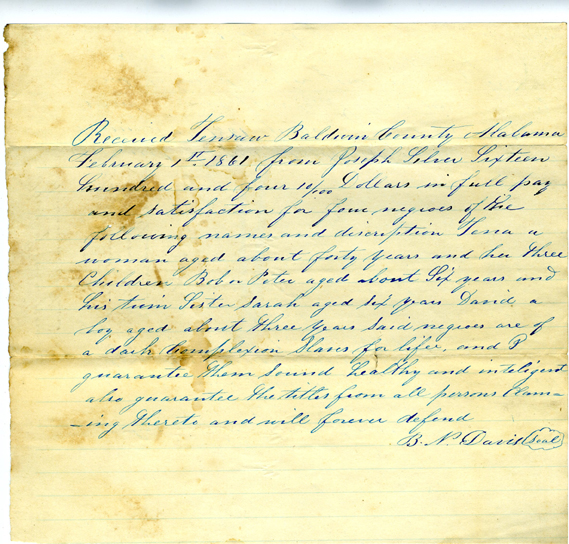 Received Tensaw Baldwin County Alabama
February 1st 1861 from Joseph Silver Sixteen
hundred and four 10/100 Dollars in full pay
and satisfaction for four negroes of the
following names and description Tena a
woman aged about forty years and her three
Children Bob or Peter aged about Six years and
his twin Sister Sarah aged six years David a
boy aged about three years said negroes are of
a dark Complexion Slaves for life, and I
guarantee them Sound Healthy and inteligent
also guarantee the titles from all persons Claim-
-ing thereto and will forever defend
B. N. Davis Seal